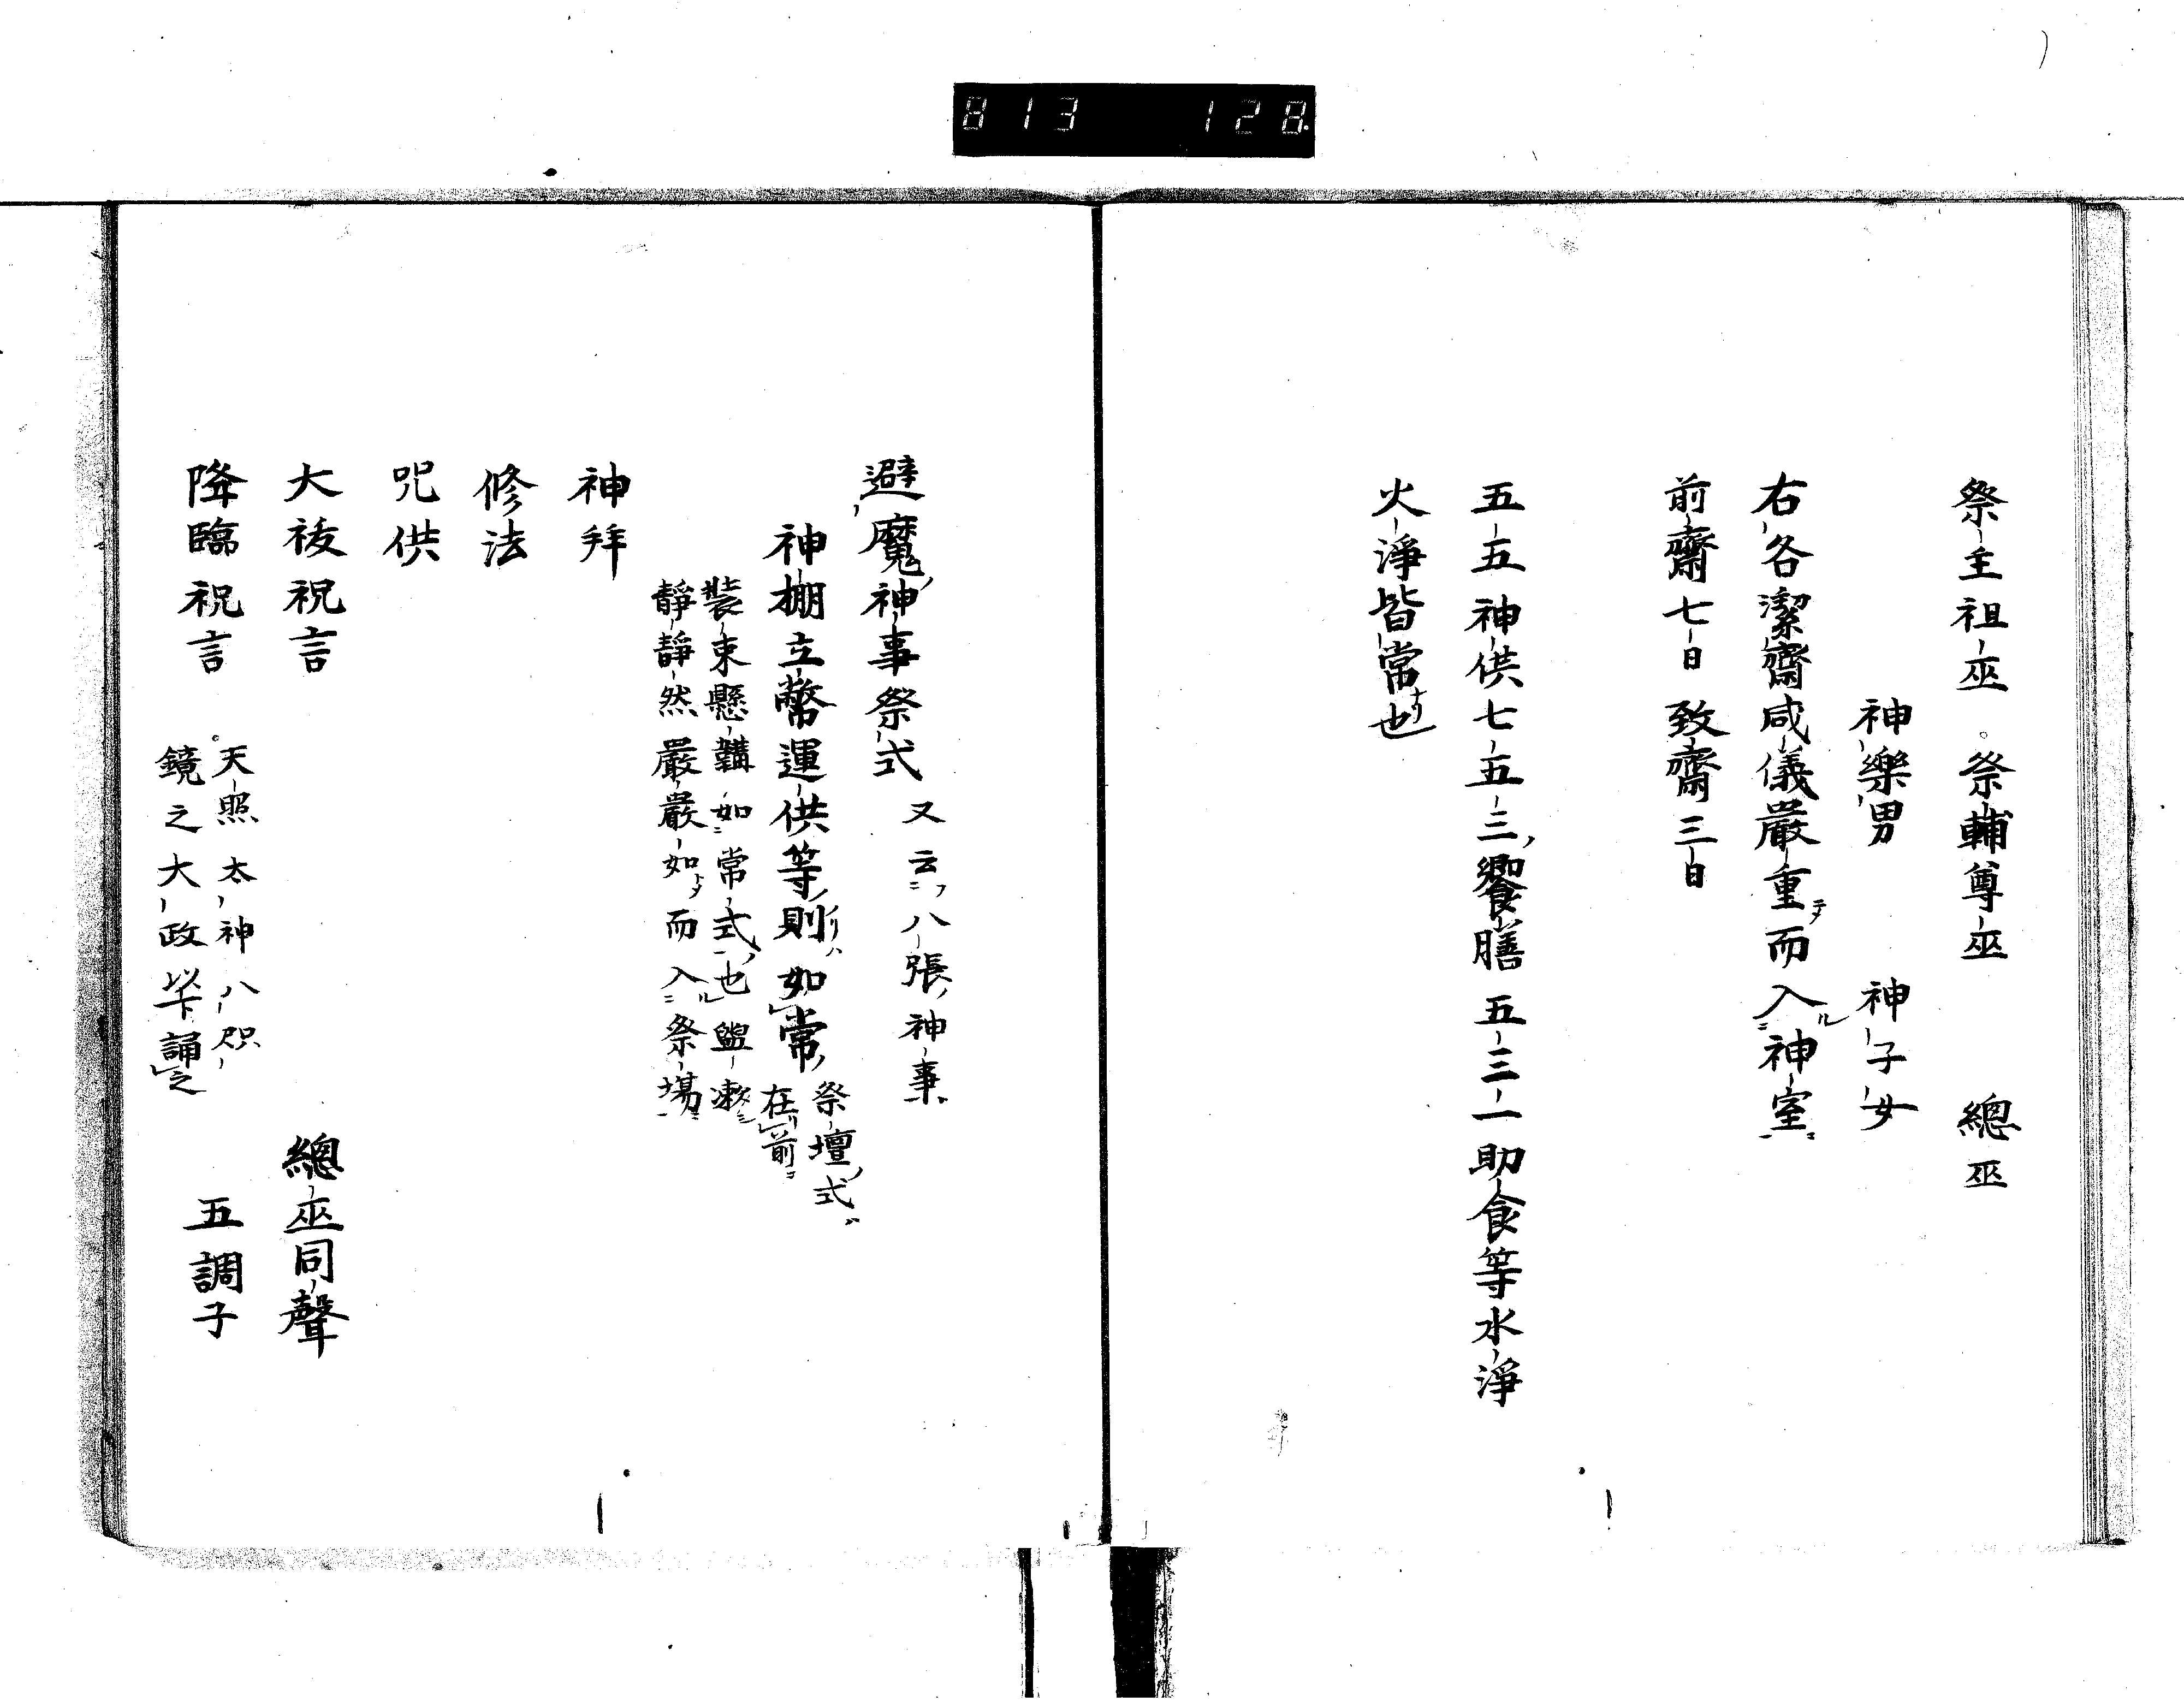 813 128
祭主祖巫。祭輔尊巫 總巫
神樂男 神子女
右各潔齋咸儀嚴重テ而入ル神室ニ
前齋七日致齋三日
五五神供七五三饗膳五三一助食等水淨
火淨皆常ナリ也
避魔神事祭式 又云八張神事
神棚立幣運供等則如常 祭壇式
在前
裝束懸鞲如常式也盥漱
靜靜然嚴嚴如而入ル祭場
神拜
修法
咒供
大祓祝言 總巫同聲
降臨祝言 天照太神八咫 五調子
鏡之大政以下誦之